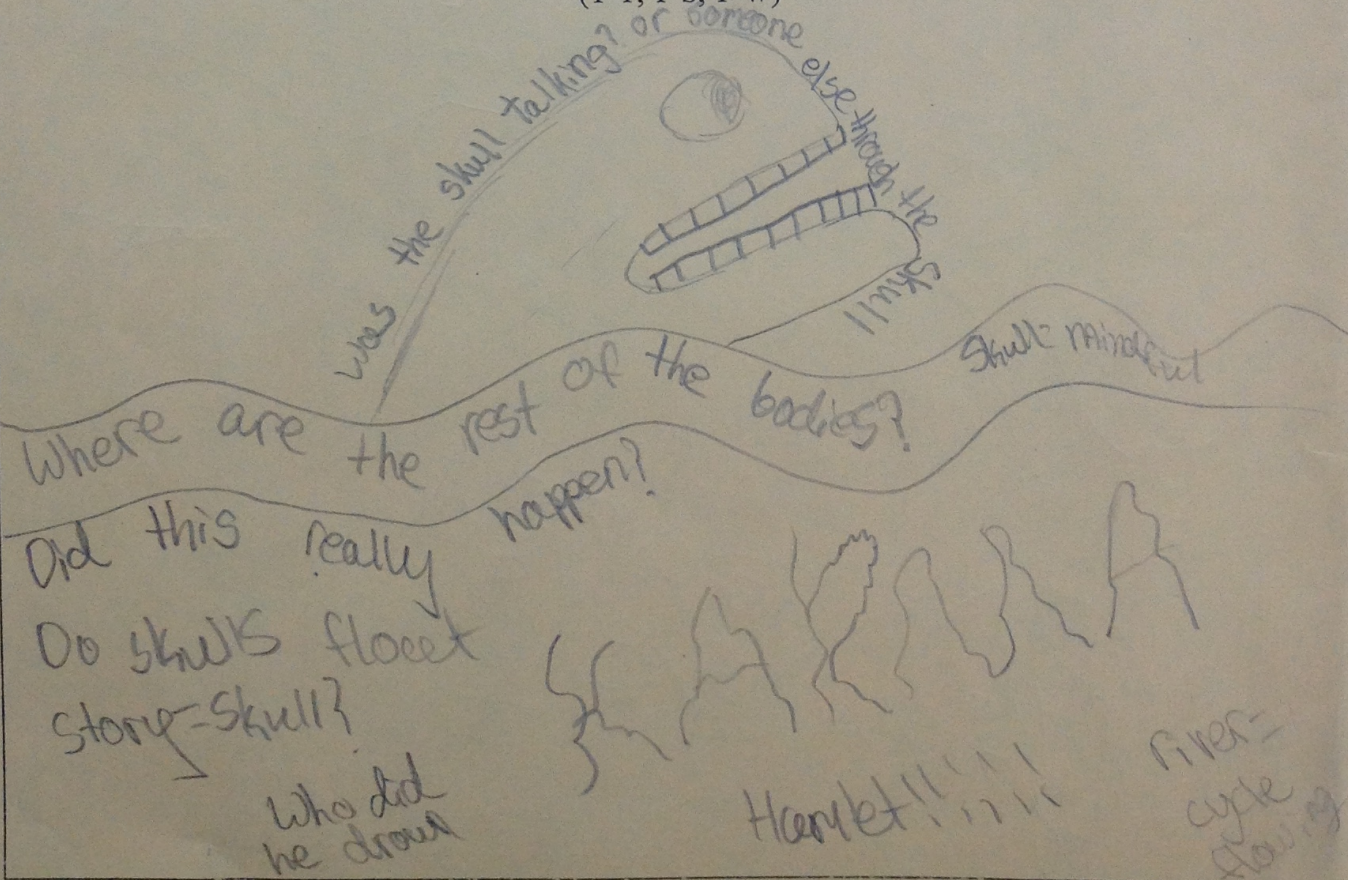 was the skull talking? or someone else through the skull
Where are the rest of the bodies?
Skull= Mindful
Did this really happen?
Do skulls float
Story=Skull?
Who did
he drown
KARMA
Hamlet!!!!!!!!
river=
cycle
flowing